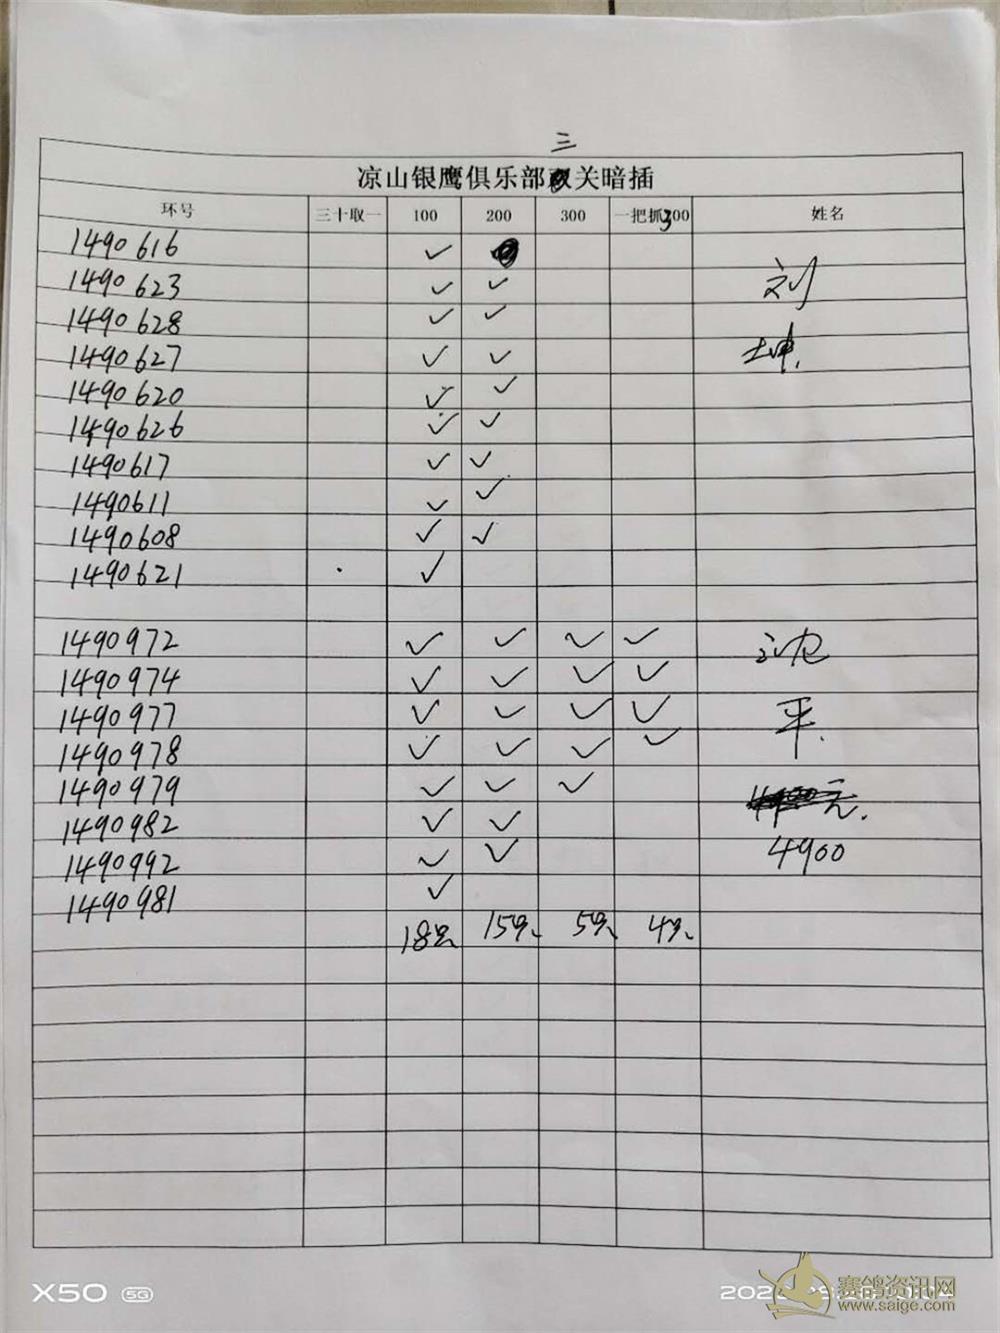 三
凉山银鹰俱乐部关暗插
环号 三十取一 100 200 300 一把抓300 姓名
1490616 ✓
1490623 ✓ ✓ 刘
1490628 ✓ ✓
1490627 ✓ ✓ 坤.
1490620 ✓ ✓
1490626 ✓ ✓
1490617 ✓ ✓
1490611 ✓ ✓
1490608 ✓ ✓
1490621 ✓
1490972 ✓ ✓ ✓ ✓ 沈
1490974 ✓ ✓ ✓ ✓
1490977 ✓ ✓ ✓ ✓ 平.
1490978 ✓ ✓ ✓ ✓
1490979 ✓ ✓ ✓ 元.
1490982 ✓ ✓
1490992 ✓ ✓ 4900
1490981 ✓
18 15 5 4
X50 5G
赛鸽资讯网
www.saige.com